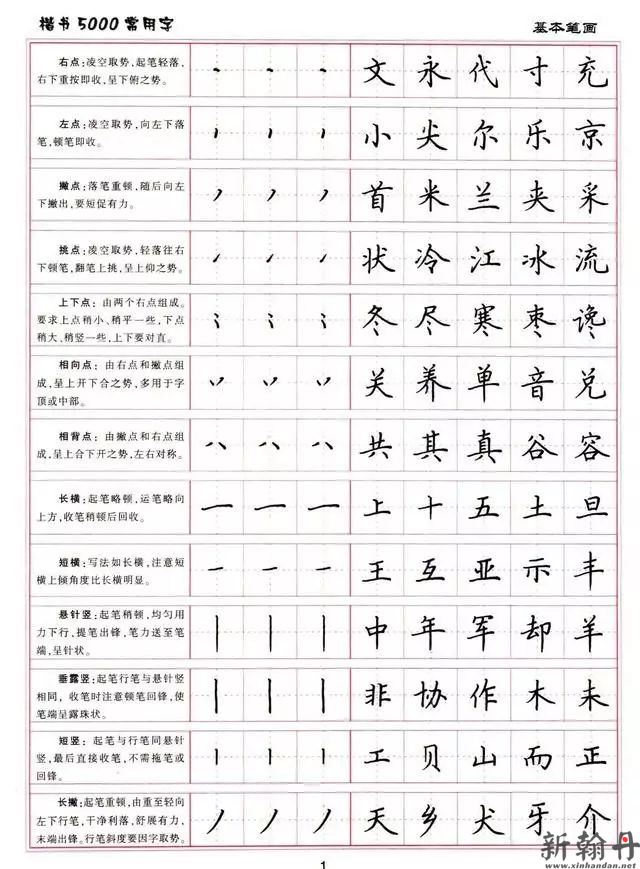 楷书5000常用字
基本笔画
右点:凌空取势,起笔轻落,
右下重按即收,呈下俯之势。
文 永 代 寸 充
左点:凌空取势,向左下落
笔,顿笔即收。
小 尖 尔 乐 京
撇点:落笔重顿,随后向左
下撇出,要短促有力。
首 米 兰 夹 采
挑点:凌空取势,轻落往右
下顿笔,翻笔上挑,呈上仰之势。
状 冷 江 冰 流
上下点:由两个右点组成。
要求上点稍小、稍平一些,下点
稍大、稍竖一些,上下要对直。
冬 尽 寒 枣 谗
相向点:由右点和撇点组
成,呈上开下合之势,多用于字
顶或中部。
关 养 单 音 兑
相背点:由撇点和右点组
成,呈上合下开之势,左右对称。
共 其 真 谷 容
长横:起笔略顿,运笔略向
上方,收笔稍顿后回收。
上 十 五 土 旦
短横:写法如长横,注意短
横上倾角度比长横明显。
王 互 亚 示 丰
悬针竖:起笔稍顿,均匀用
力下行,提笔出锋,笔力送至笔
端,呈针状。
中 年 军 却 羊
垂露竖:起笔行笔与悬针竖
相同,收笔时注意顿笔回锋,使
笔端呈露珠状。
非 协 作 木 未
短竖:起笔与行笔同悬针
竖,最后直接收笔,不需拖笔或
回锋。
工 贝 山 而 正
长撇:起笔重顿,由重至轻向
左下行笔,干净利落,舒展有力,
末端出锋。行笔斜度要因字取势。
天 乡 犬 牙 介
1
新翰丹
www.xinhandan.net